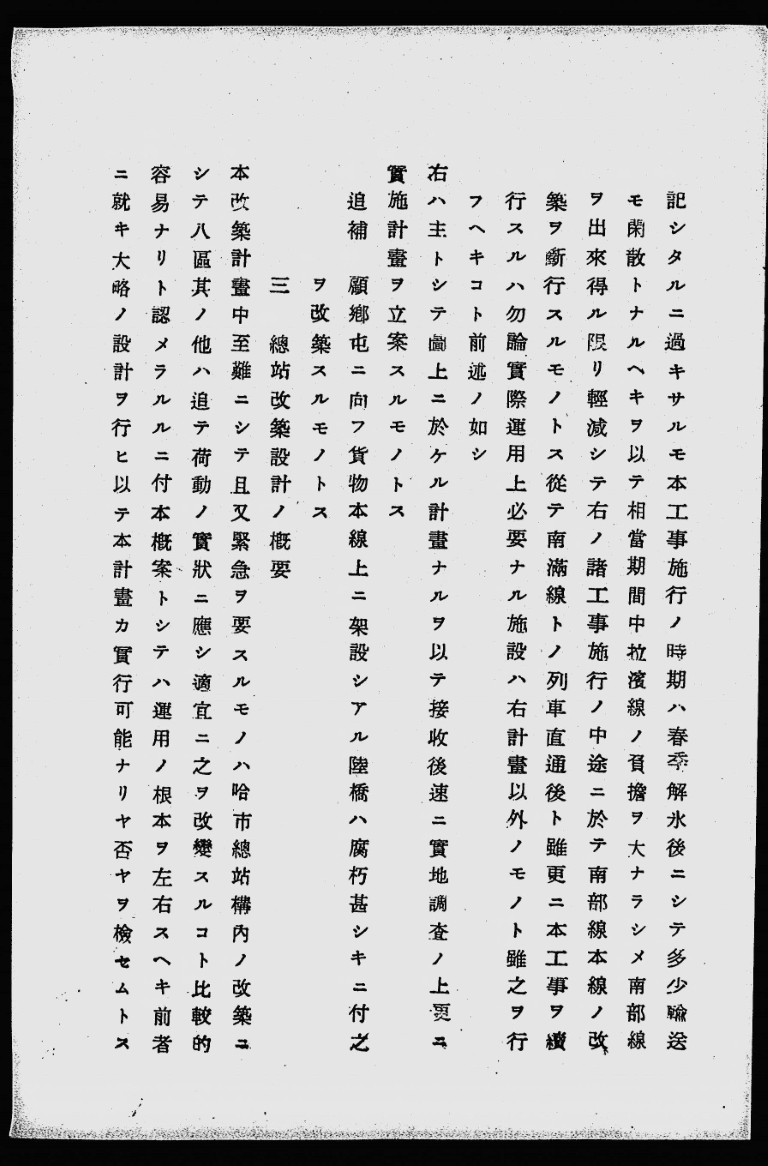 記シタルニ過キサルモ本工事施行ノ時期ハ春季解氷後ニシテ多少輸送
モ閑散トナルヘキヲ以テ相當期間中拉濱線ノ負擔ヲ大ナラシメ南部線
ヲ出來得ル限リ輕減シテ右ノ諸工事施行ノ中途ニ於テ南部線本線ノ改
築ヲ斷行スルモノトス從テ南滿線トノ列車直通後ト雖更ニ本工事ヲ續
行スルハ勿論實際運用上必要ナル施設ハ右計畫以外ノモノト雖之ヲ行
フヘキコト前述ノ如シ
右ハ主トシテ圖上ニ於ケル計畫ナルヲ以テ接收後速ニ實地調査ノ上更ニ
實施計畫ヲ立案スルモノトス
追補 顧鄕屯ニ向フ貨物本線上ニ架設シアル陸橋ハ腐朽甚シキニ付之
ヲ改築スルモノトス
三 總站改築設計ノ槪要
本改築計畫中至難ニシテ且又緊急ヲ要スルモノハ哈市總站構內ノ改築ニ
シテ八區其ノ他ハ追テ荷動ノ實狀ニ應シ適宜ニ之ヲ改變スルコト比較的
容易ナリト認メラルルニ付本槪案トシテハ運用ノ根本ヲ左右スヘキ前者
ニ就キ大略ノ設計ヲ行ヒ以テ本計畫カ實行可能ナリヤ否ヤヲ檢セムトス